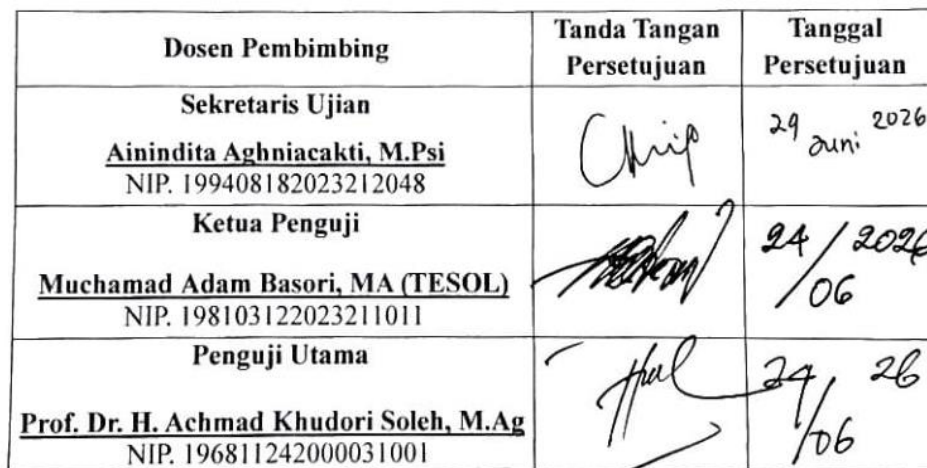 Dosen Pembimbing
Tanda Tangan
Persetujuan
Tanggal
Persetujuan
Sekretaris Ujian
Ainindita Aghniacakti, M.Psi
NIP. 199408182023212048
29 Juni 2026
Ketua Penguji
Muchamad Adam Basori, MA (TESOL)
NIP. 198103122023211011
24 / 2026
06
Penguji Utama
Prof. Dr. H. Achmad Khudori Soleh, M.Ag
NIP. 196811242000031001
24 / 26
06